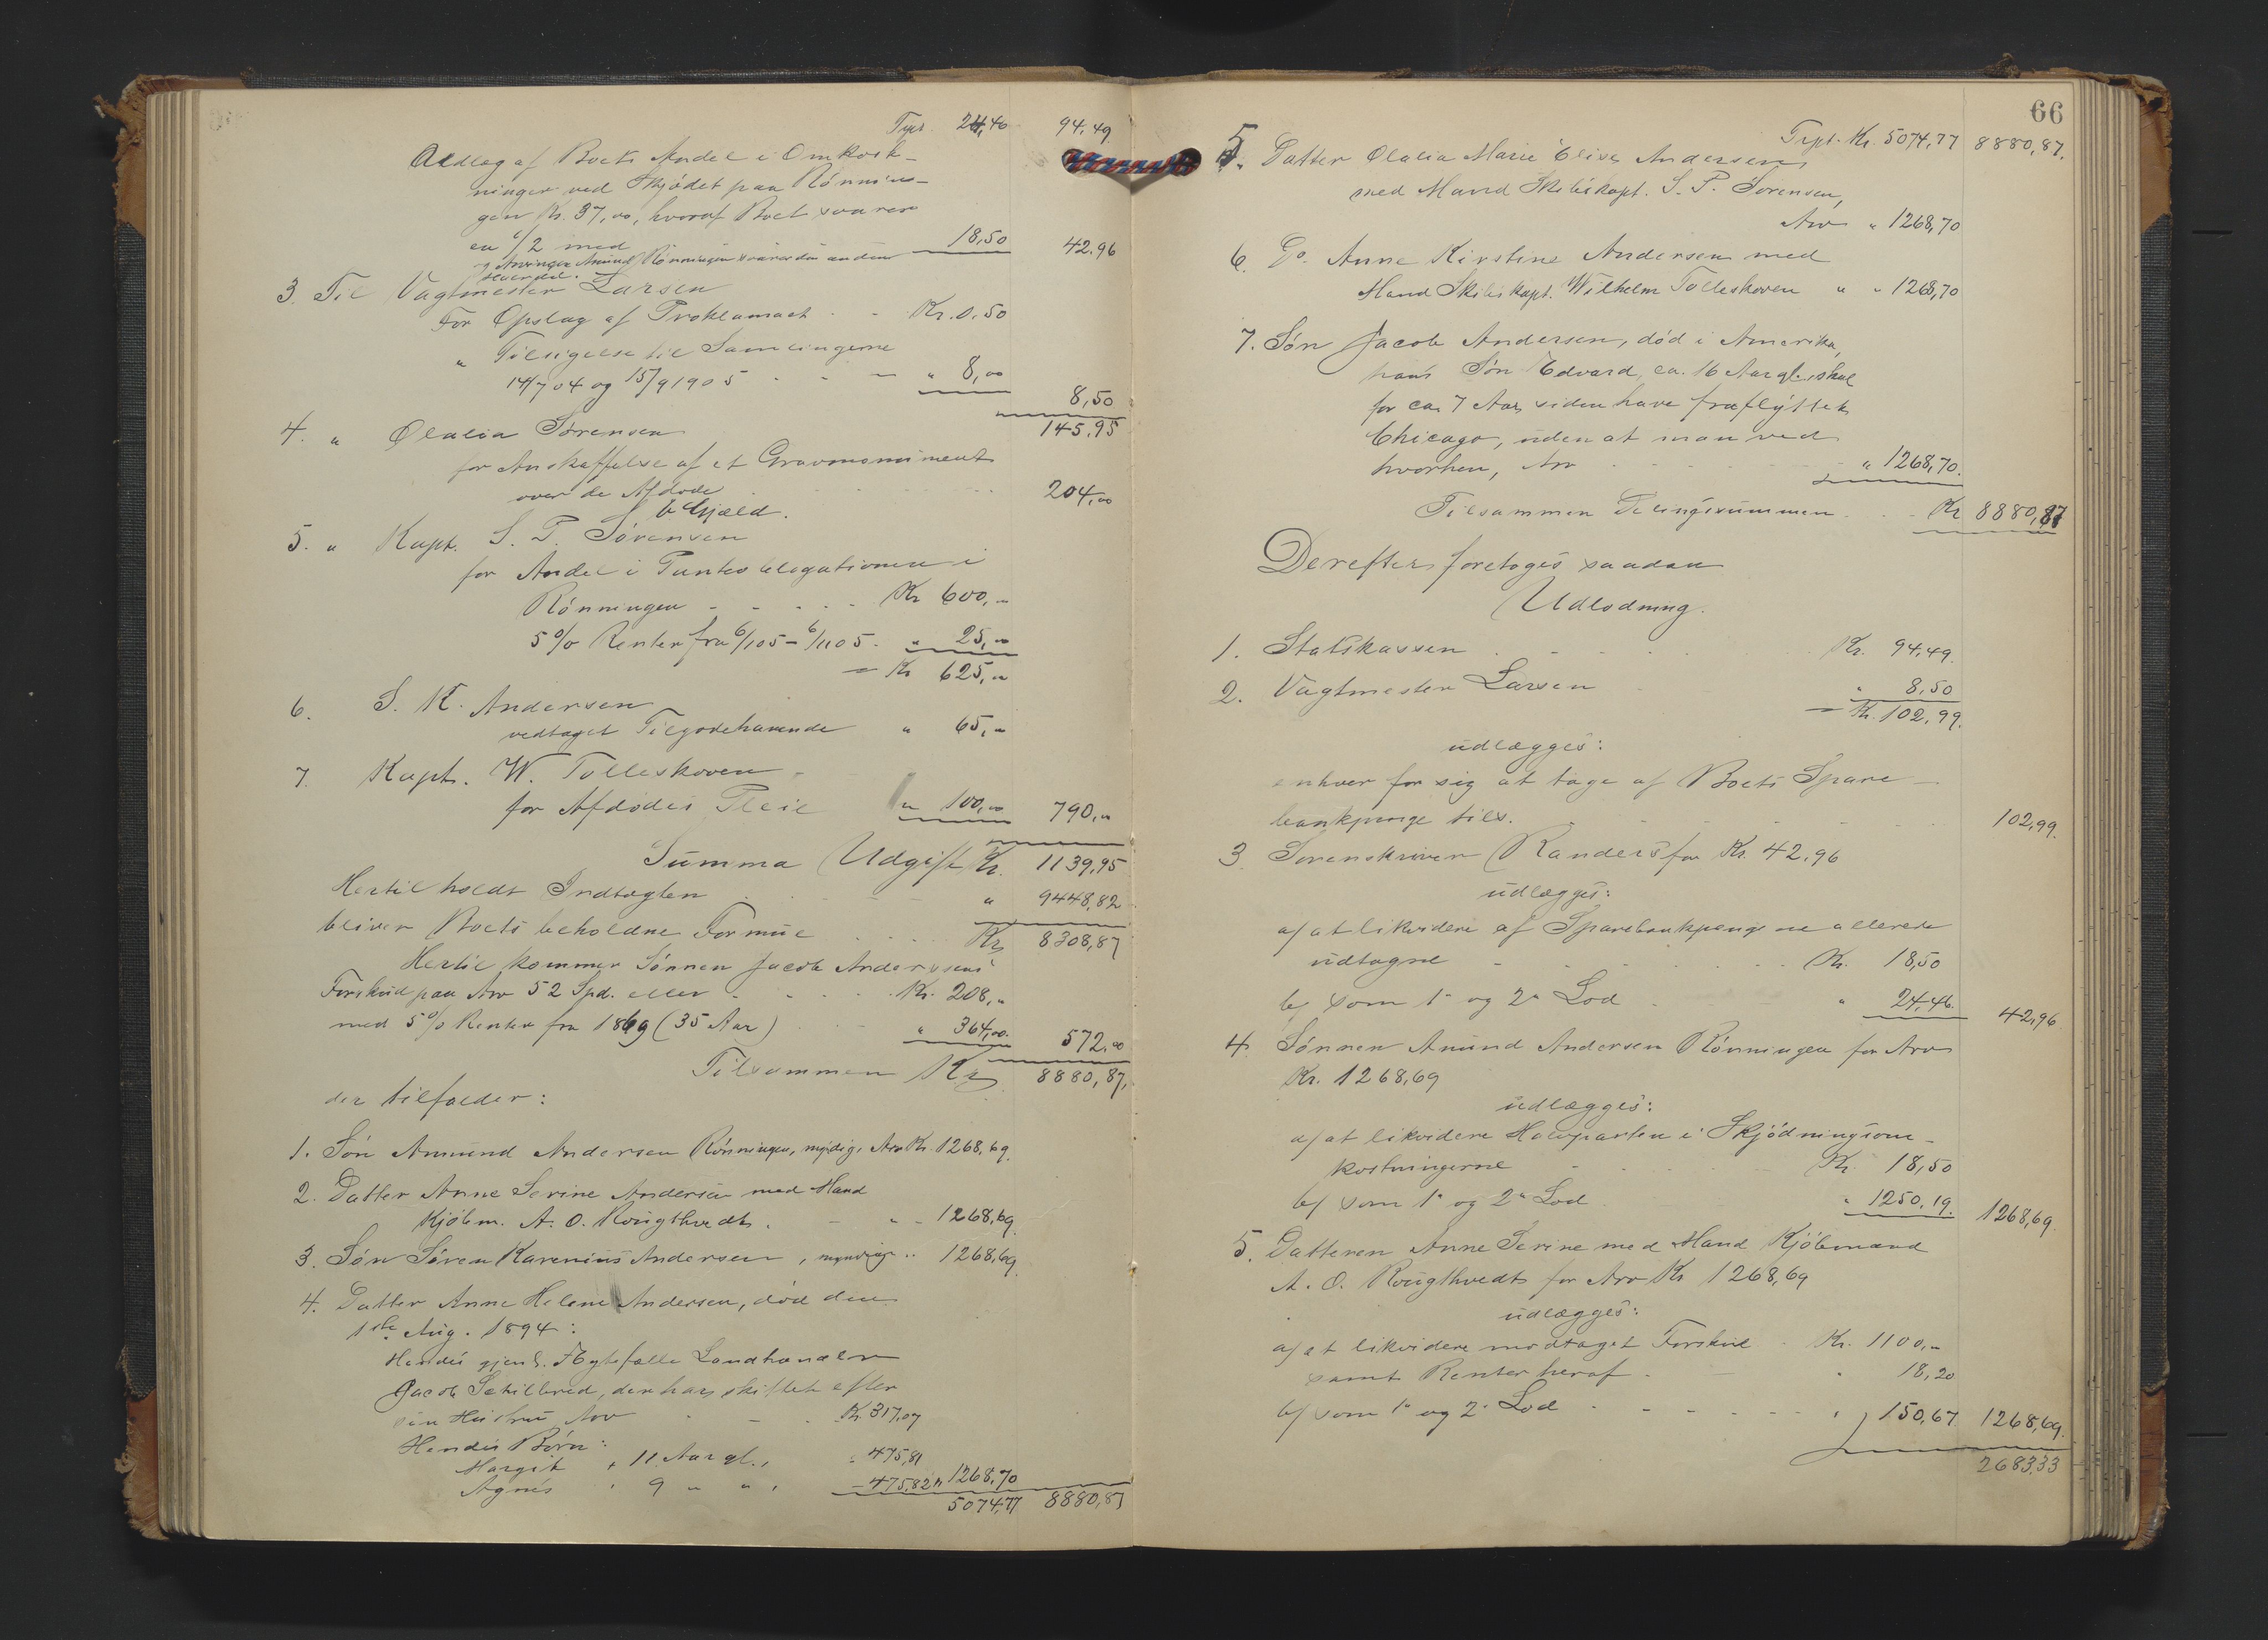 Trpt. 24,46 94,49
Udlæg af Boets Andel i Omkost-
ninger ved Skjödet paa Rönnin-
gen Kr. 37,00, hvoraf Boet svarer
en 1/2 med 18,50 42,96
og Arvingen Amund Rönningen svarer den anden
Halvdel.
3. Til Vagtmester Larsen
For Opslag af Proklamaet - Kr. 0.50
" Tilsigelse til Samlingerne
14/7 04 og 15/9 1905 - - " 8,00 8,50
145,95
4. " Olalia Sörensen
for Anskaffelse af et Gravmonument
over de Afdöde 204,00
b Gjæld.
5. " Kapt. S. P. Sörensen
for Andel i Panteobligationen i
Rönningen - - - Kr 600,-
5 % Renter fra 6/1 05 - 6/11 05. " 25,-
= Kr 625,-
6. S. K. Andersen
vedtaget Tilgodehavende " 65,-
7. Kapt. W. Tolleskoven
for Afdödes Pleie " 100,00 790,-
Summa Udgift Kr. 1139,95
Hertil holdt Indtægten " 9448,82
bliver Boets beholdne Formue Kr 8308,87
Hertil kommer Sönnen Jacob Anderssens
Forskud paa Arv 52 Spd. eller - Kr. 208,-
med 5% Renter fra 1869 (35 Aar) " 364,00. 572,00
Tilsammen Kr 8880,87.
der tilfalder:
1. Sön Amund Andersen Rönningen, myndig, Arv Kr. 1268,69.
2. Datter Anne Serine Andersen med Mand
Kjöbm. A. O. Rougthvedt. - " - 1268,69.
3. Sön Sören Karenius Andersen, myndig " 1268,69.
4. Datter Anne Helene Andersen, död den
1ste Aug. 1894:
Hendes gjenl. Ægtefælle Landhandler
Jacob Sætilbred, der har skiftet efter
sin Hustru Arv - - Kr. 317,07
Hendes Börn:
Margit, 11 Aar gl., " 475,81
Agnes, 9 " ", - 475,82 " 1268,70
5074,77 8880,87
66
Trpt. Kr. 5074,77 8880,87.
5. Datter Olalia Marie Elise Andersen,
med Mand Skibskapt. S. P. Sörensen,
Arv " 1268,70
6. Do. Anne Kirstine Andersen med
Mand Skibskapt. Wilhelm Tolleskoven " " 1268,70
7. Sön Jacob Andersen, död i Amerika,
hans Sön Edvard, ca. 16 Aar gl. skal
for ca 7 Aar siden have fraflyttet
Chicago, uden at man ved
hvorhen, Arv - - - " 1268,70.
Tilsammen Delingssummen - Kr 8880,87
Derefter foretoges saadan
Udlodning.
1. Statskassen - - - Kr. 94,49.
2. Vagtmester Larsen " 8,50
= Kr. 102,99.
udlægges:
enhver for sig at tage af Boets Spare-
bankpenge tils. - - - 102,99.
3 Sorenskriver Randers for Kr. 42,96
udlægges:
a/ at likvidere af Sparebankpengene allerede
udtagne - - - Kr. 18,50
b/ som 1" og 2" Lod - " 24,46. 42,96.
4. Sönnen Amund Andersen Rönningen for Arv
Kr. 1268,69
udlægges:
a/ at likvidere Halvparten i Skjödningsom-
kostningerne - - Kr. 18,50
b/ som 1" og 2" Lod " 1250,19. 1268,69.
5. Datteren Anne Serine med Mand Kjöbmand
A. O. Rougthvedt for Arv Kr 1268,69
udlægges:
a/ at likvidere modtaget Forskud - Kr. 1100,-
samt Renter heraf - " 18,20
b/ som 1" og 2" Lod - - - " 150,67 1268,69.
2683,33